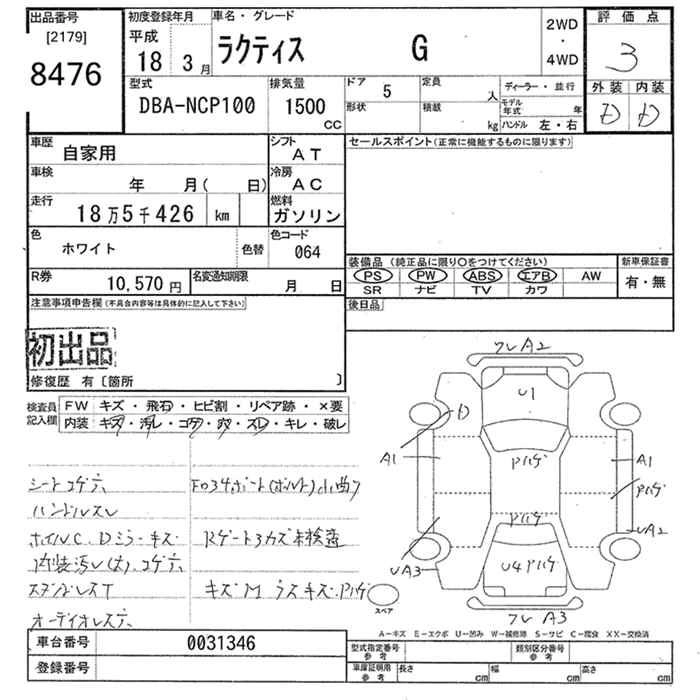 出品番号
[2179]
8476
初度登録年月
平成
18 3月
車名・グレード
ラクティス G
2WD
・
4WD
評価点
3
外装 内装
D D
型式
DBA-NCP100
排気量
1500
CC
ドア 5
形状
定員 人
積載 kg
ディーラー・並行
モデル年式 年
ハンドル 左・右
車歴
自家用
シフト
AT
車検
年 月( 日)
冷房
AC
走行
18万5千426 km
燃料
ガソリン
色
ホワイト
色替
色コード
064
R券
10,570円
名変通知期限
月 日
セールスポイント(正常に機能するものに限ります)
装備品 (純正品に限り○をつけてください)
PS PW ABS エアB AW
SR ナビ TV カワ
新車保証書
有・無
後日品
注意事項申告欄(不具合内容等は具体的に記入して下さい)
初出品
修復歴 有〔箇所 〕
検査員記入欄
FW キズ・飛石・ヒビ割・リペア跡・×要
内装 キズ・汚レ・コゲ・穴・ズレ・キレ・破レ
シートコゲ穴
ハンドルスレ
ホイルC Dミラーキズ
内装汚レ(大)、コゲ穴
オーディオレス穴
小曲り
Rゲート
未検査
キズM
ハゲ
フレA2
U1
D
A1
Pハゲ
A1
Pハゲ
Pハゲ
UA2
UA3
U4 Pハゲ
フレA3
スペア
A-キズ E-エクボ U-凹み W-補修跡 S-サビ C-腐食 XX-交換済
車台番号
0031346
登録番号
型式指定番号
参考
類別区分番号
参考
車庫証明用
参考
長さ cm
幅 cm
高さ cm